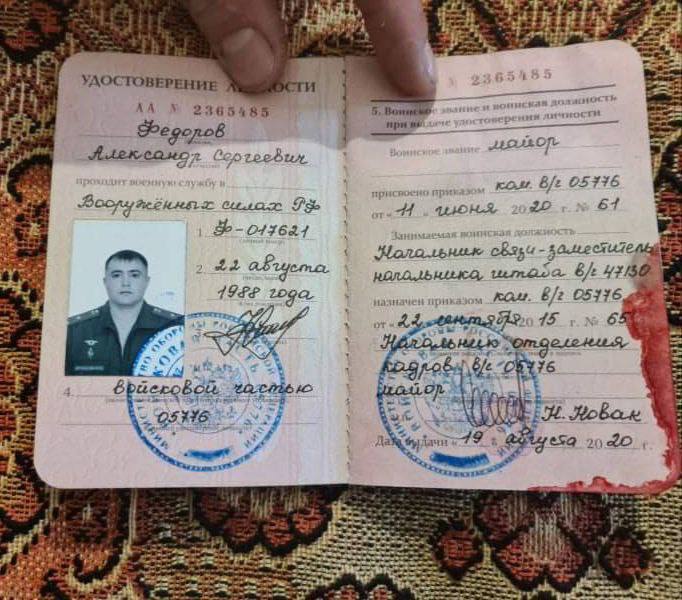 УДОСТОВЕРЕНИЕ ЛИЧНОСТИ
АА № 2365485
Федоров
Александр Сергеевич
проходит военную службу в
Вооружённых силах РФ
1. Ф-017621
2. 22 августа
1988 года
4. войсковой частью
05776
№ 2365485
5. Воинское звание и воинская должность
при выдаче удостоверения личности
Воинское звание майор
присвоено приказом ком. в/г 05776
от « 11 » июня 2020 г. № 61
Занимаемая воинская должность
Начальник связи-заместитель
начальника штаба в/г 47130
назначен приказом ком. в/г 05776
от « 22 сентября 2015 г. № 65
Начальник отделения
кадров в/г 05776
майор
Н. Новак
Дата выдачи « 19 » августа 2020 г.